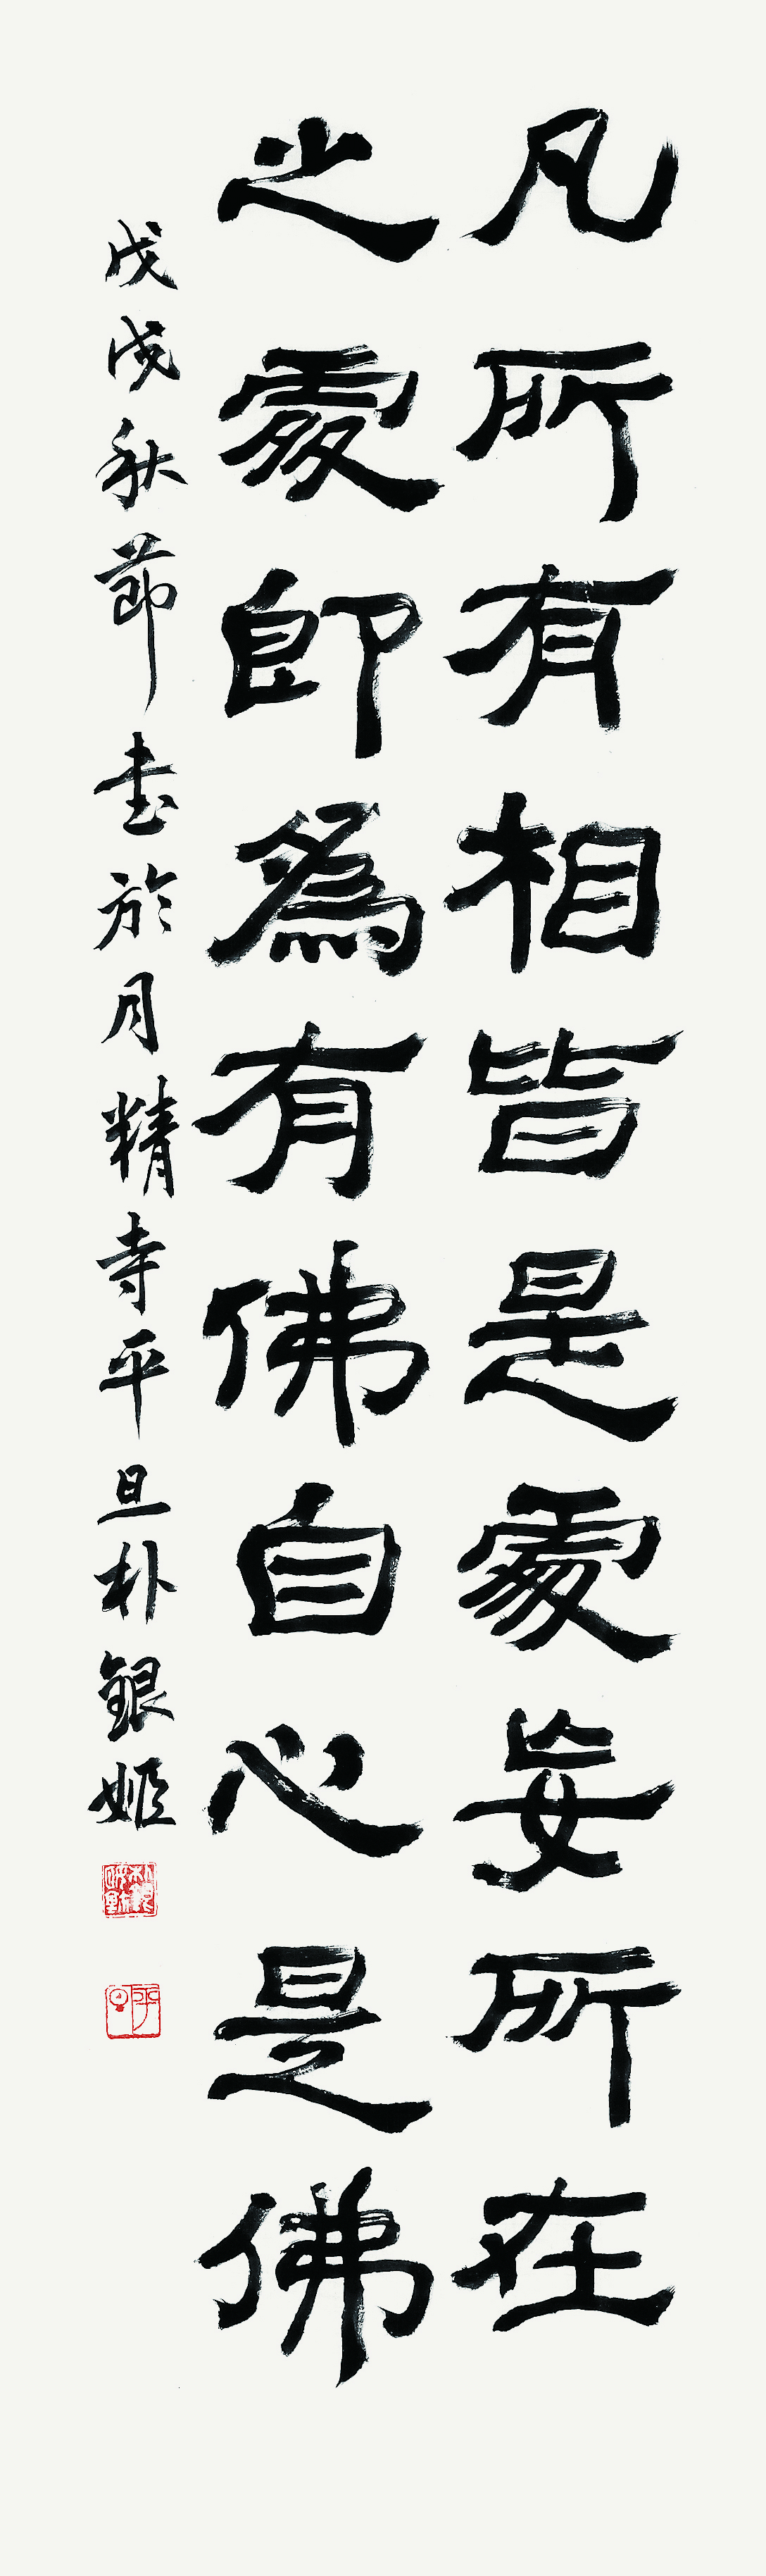 凡所有相皆是處妄所在
之處即爲有佛自心是佛
戊戌秋節書於月精寺平旦朴銀姬